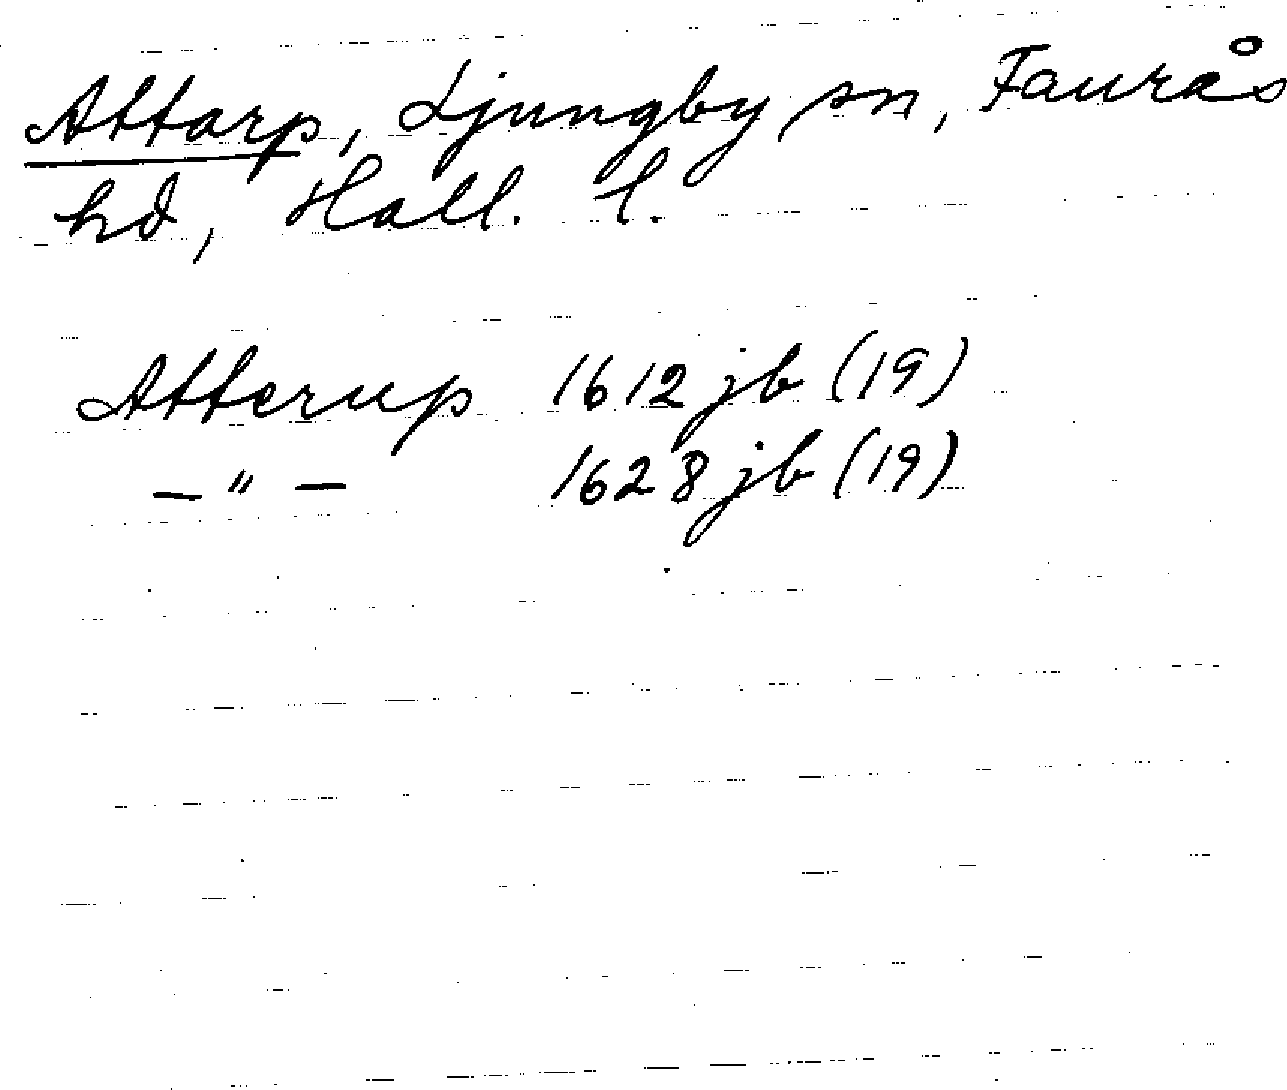 Attarp, Ljungby sn, Faurås
hd, Hall. l.
Atterup 1612 jb (19)
— " — 1628 jb (19)